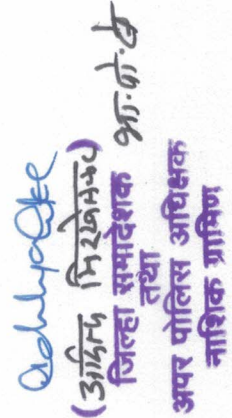 (आदित्य मिरखेलकर) भा.पो.से
जिल्हा समादेशक
तथा
अपर पोलिस अधिक्षक
नाशिक ग्रामिण